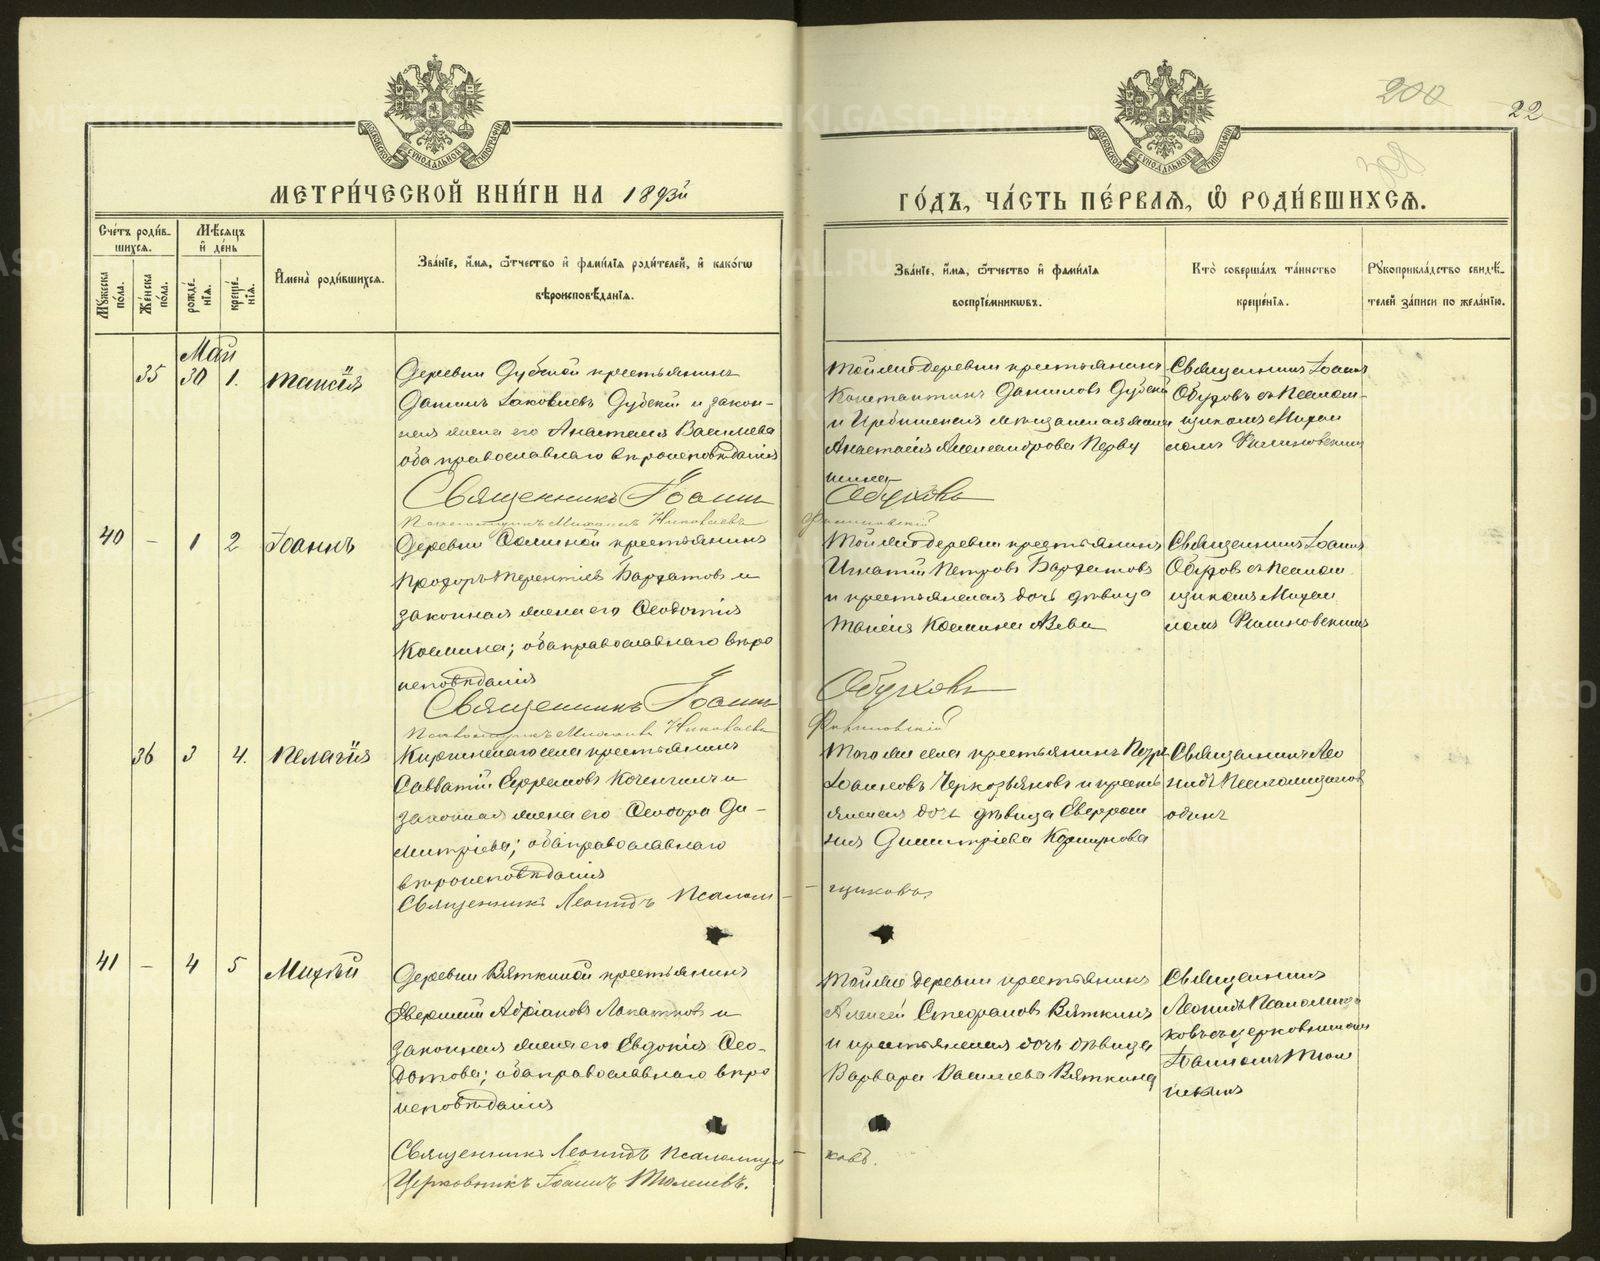 200
22
308
МОСКОВСКОЙ СѴНОДАЛЬНОЙ ТИПОГРАФІИ
МОСКОВСКОЙ СѴНОДАЛЬНОЙ ТИПОГРАФІИ
МЕТРИ́ЧЕСКОЙ КНИ́ГИ НА 1893й
ГО́ДЪ, ЧА́СТЬ ПЕ́РВАЯ, Ѡ҆ РОДИ́ВШИХСЯ.
Сче́тъ роди́в-
шихся.
Мѣсяцъ
и де́нь
Му́жеска по́ла.
Же́нска по́ла.
рожде́нія.
креще́нія.
Имена̀ роди́вшихся.
Зва́ніе, и́мя, ѻ́тчество и фами́лія роди́телей, и како́гѡ
вѣроисповѣ́данія.
Зва́ніе, и́мя, ѻ́тчество и фами́лія
воспріе́мниковъ.
Кто̀ соверша́лъ та́инство
креще́нія.
Рукоприкла́дство свидѣ́-
телей за́писи по жела́нію.
Май
35 30 1. Таисія
Деревни Дубской крестьянинъ
Данiилъ Іаковлевъ Дубскій и закон-
ная жена его Анастасія Васильева
оба православнаго вѣроисповѣданія
Священникъ Іоаннъ
Псаломщикъ Михаилъ Николаевъ
Той же деревни крестьянинъ
Константинъ Даниловъ Дубскій
и Ирбитская мѣщанская жена
Анастасія Александрова Перву
шина
Обуховъ
Филиновскій
Священникъ Іоаннъ
Обуховъ съ Псалом-
щикомъ Михаи
ломъ Филиновскимъ
40 – 1 2 Іоаннъ
Деревни крестьянинъ
Терентіевъ и
законная жена его Ѳеодотія
Космина; оба православнаго вѣро
исповѣданія
Священникъ Іоаннъ
Псаломщикъ Михаилъ Николаевъ
Той же деревни крестьянинъ
Игнатій Петровъ
и крестьянская дочь дѣвица
Таисія Космина
Обуховъ
Филиновскій
Священникъ Іоаннъ
Обуховъ съ Псалом
щикомъ Михаи
ломъ Филиновскимъ
36 3 4. Пелагія
Киргинскаго села крестьянинъ
Савватій Ефремовъ и
законная жена его Ѳеодора Ди-
митріева; оба православнаго
вѣроисповѣданія
Священникъ Леонидъ Псалом-
Того же села крестьянинъ Петръ
Іоанновъ и кресть
янская дочь дѣвица Евфроси
нія Димитріева
-щиковъ
Священникъ Лео
нидъ Псаломщиковъ
одинъ
41 – 4 5 Михѣй
Деревни Вяткиной крестьянинъ
Адріановъ Лопатковъ и
законная жена его Евдокія Ѳео-
дотова; оба православнаго вѣро
исповѣданія
Священникъ Леонидъ Псаломщи-
Церковникъ Іоаннъ Тюшевъ.
Той же деревни крестьянинъ
Алексей Стефановъ Вяткинъ
и крестьянская дочь дѣвица
Варвара Васильева Вяткина
ковъ.
Священникъ
Леонидъ Псаломщи
ковъ съ церковникомъ
Іоанномъ